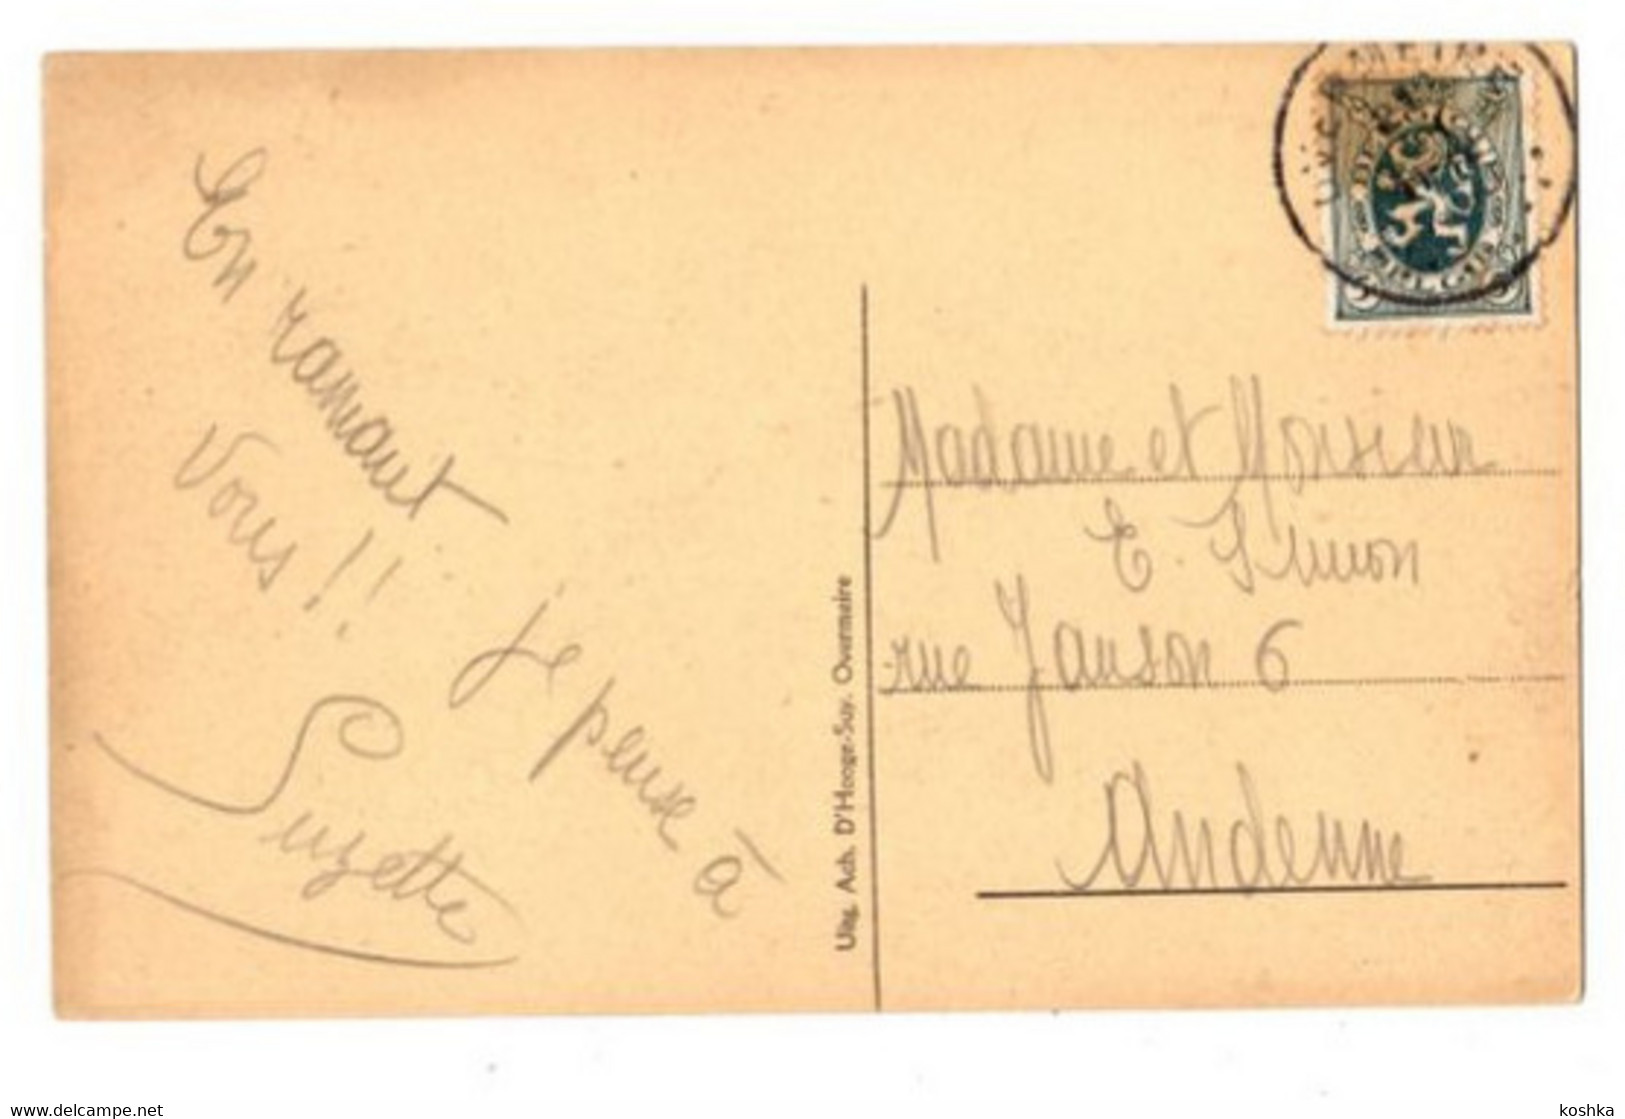 En ramant je pense à
vous !!
Suzette
Uitg. Ach. D'Hooge-Suy. Overmeire
Madame et Monsieur
E. Simon
rue Janson 6
Andenne
www.delcampe.net
koshka